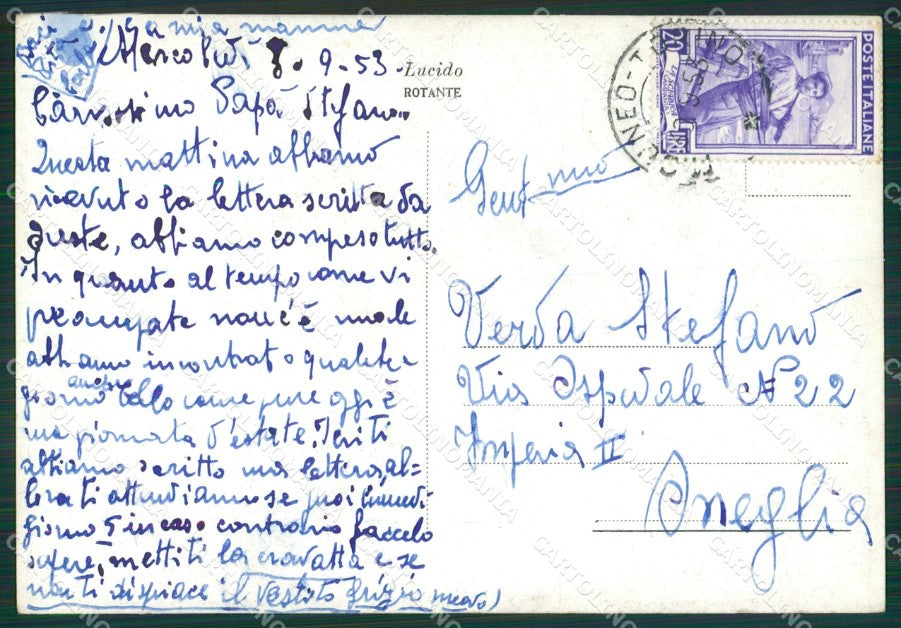 la mia mamma
Baci
3 - 9 - 53 -
Lucido
ROTANTE
Carissimo Papà Stefano..
Questa mattina abbiamo
ricevuto la lettera scritta da
abbiamo compreso tutto.
In quanto al tempo come vi
preoccupate non c'è male
abbiamo incontrato qualche
giorno anche bello come pure oggi è
una giornata d'estate. Ieri ti
abbiamo scritto una lettera, al=
lora ti attendiamo se puoi lunedì
giorno in caso contrario faccelo
sapere, mettiti la cravatta e se
non ti dispiace il vestito grigio nuovo)
POSTE ITALIANE
20
LIRE
CUNEO
Gent mo
Verda Stefano
Via Ospedale N 22
Imperia II
Oneglia
CARTOLINOMANIA